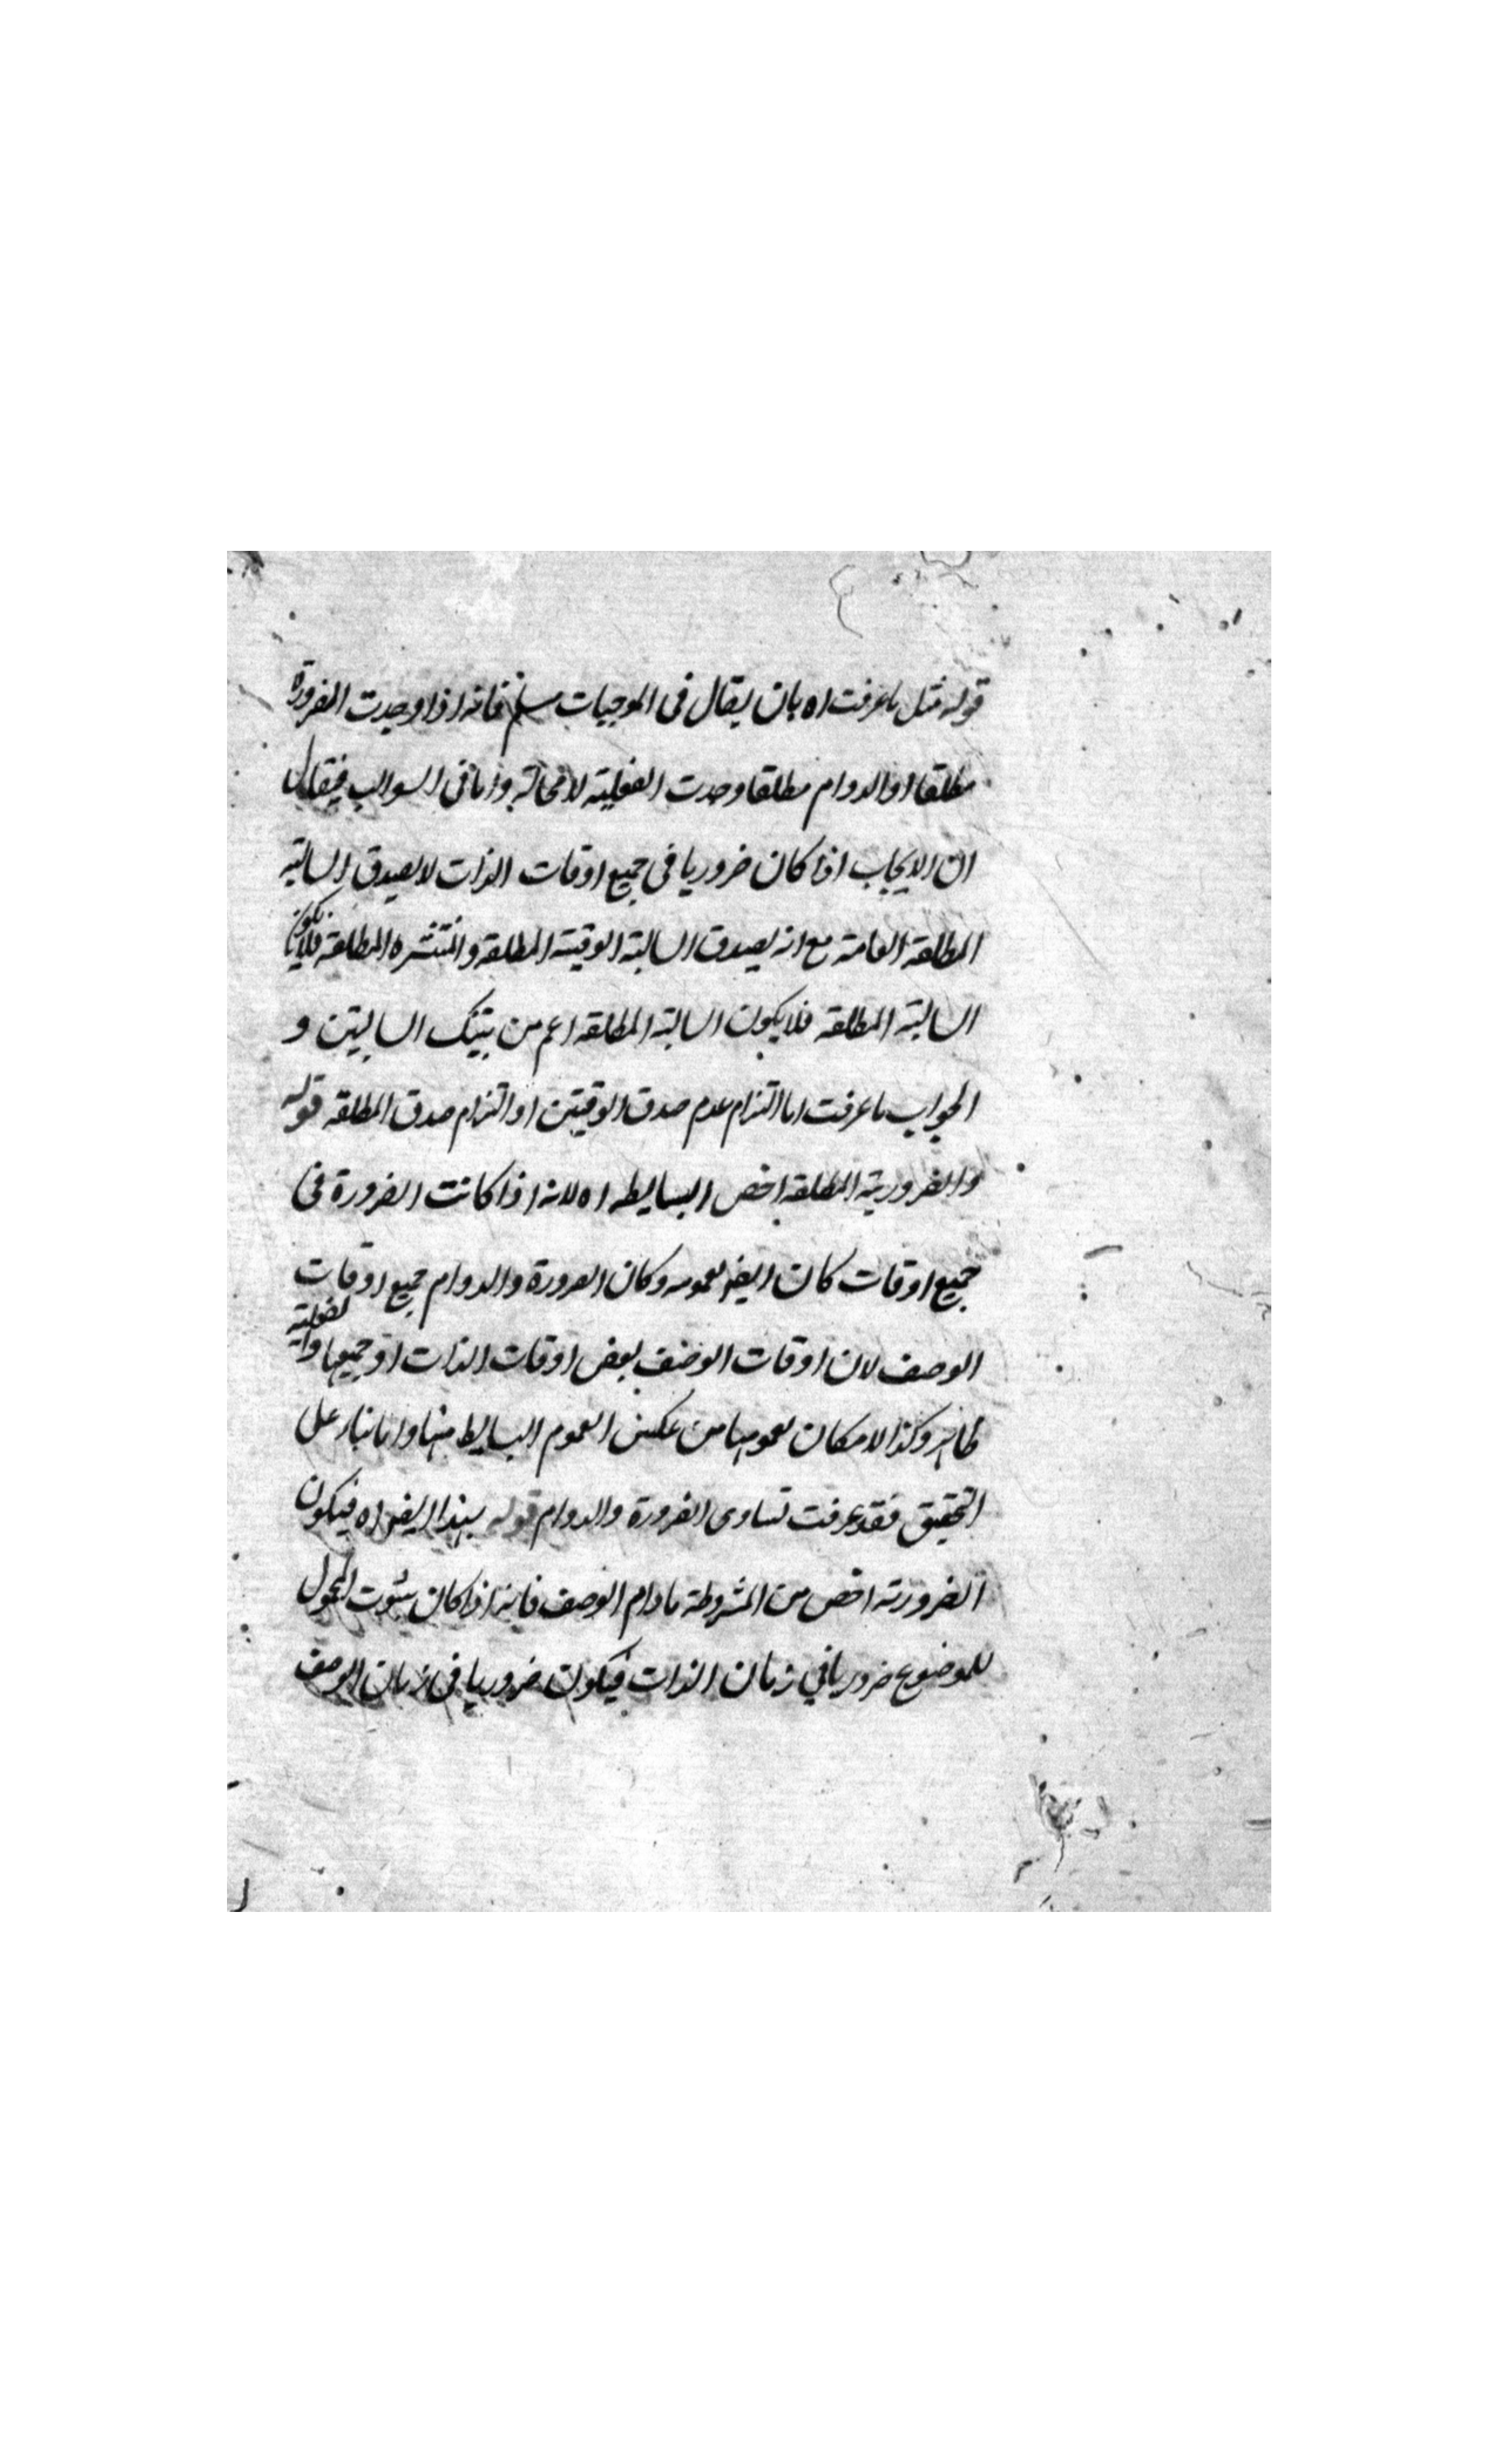 قوله مثل ما عرفت اه بان يقال فى الموجبات مسلم فانه اذا وجدت الضرورة
مطلقا او الدوام مطلقا وجدت الفعلية لا محالة واما فى السوالب فيقال
ان الايجاب اذا كان ضروريا فى جميع اوقات الذات لا يصدق السالبة
المطلقة العامة مع انه يصدق السالبة الوقتية المطلقة والمنتشره المطلقة فلا يكون
السالبة المطلقة فلا يكون السالبة المطلقة اعم من تينك السالبتين و
الجواب ما عرفت اما التزام عدم صدق الوقتيتين او التزام صدق المطلقة قوله
والضرورية المطلقة اخص البسايط اه لانه اذا كانت الضرورة فى
جميع اوقات كان ايضا وكان الضرورة والدوام جميع اوقات
الوصف لان اوقات الوصف بعض اوقات الذات او جميعها والفعلية
ظاهر وكذا الامكان لعمومها من عكس العموم البسايط منها واما بناء على
التحقيق فقد عرفت تساوى الضرورة والدوام قوله بهذا ايضا اه فيكون
الضرورية اخص من المشروطة مادام الوصف فانه اذا كان ثبوت المحمول
للموضوع ضروريا فى زمان الذات فيكون ضروريا فى زمان الوصف